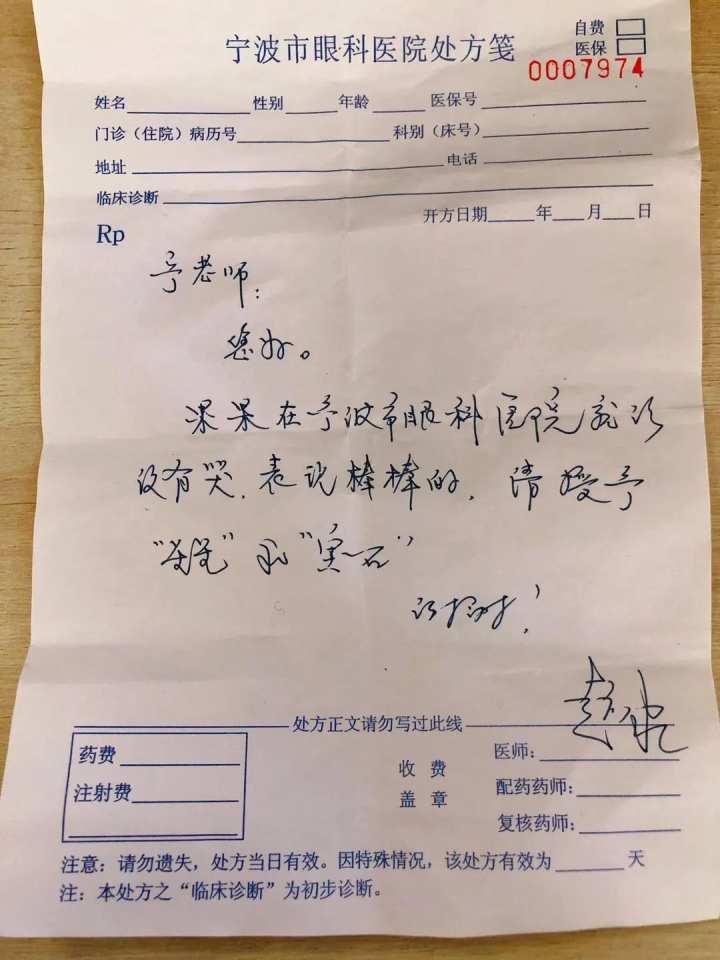 宁波市眼科医院处方笺
自费
医保
0007974
姓名 性别 年龄 医保号
门诊（住院）病历号 科别（床号）
地址 电话
临床诊断
开方日期 年 月 日
Rp
老师：
您好。
果果在宁波市眼科医院就诊
没有哭，表现棒棒的，请授予
处方正文请勿写过此线
药费
注射费
收费
盖章
医师：
配药药师：
复核药师：
注意：请勿遗失，处方当日有效。因特殊情况，该处方有效为 天
注：本处方之“临床诊断”为初步诊断。